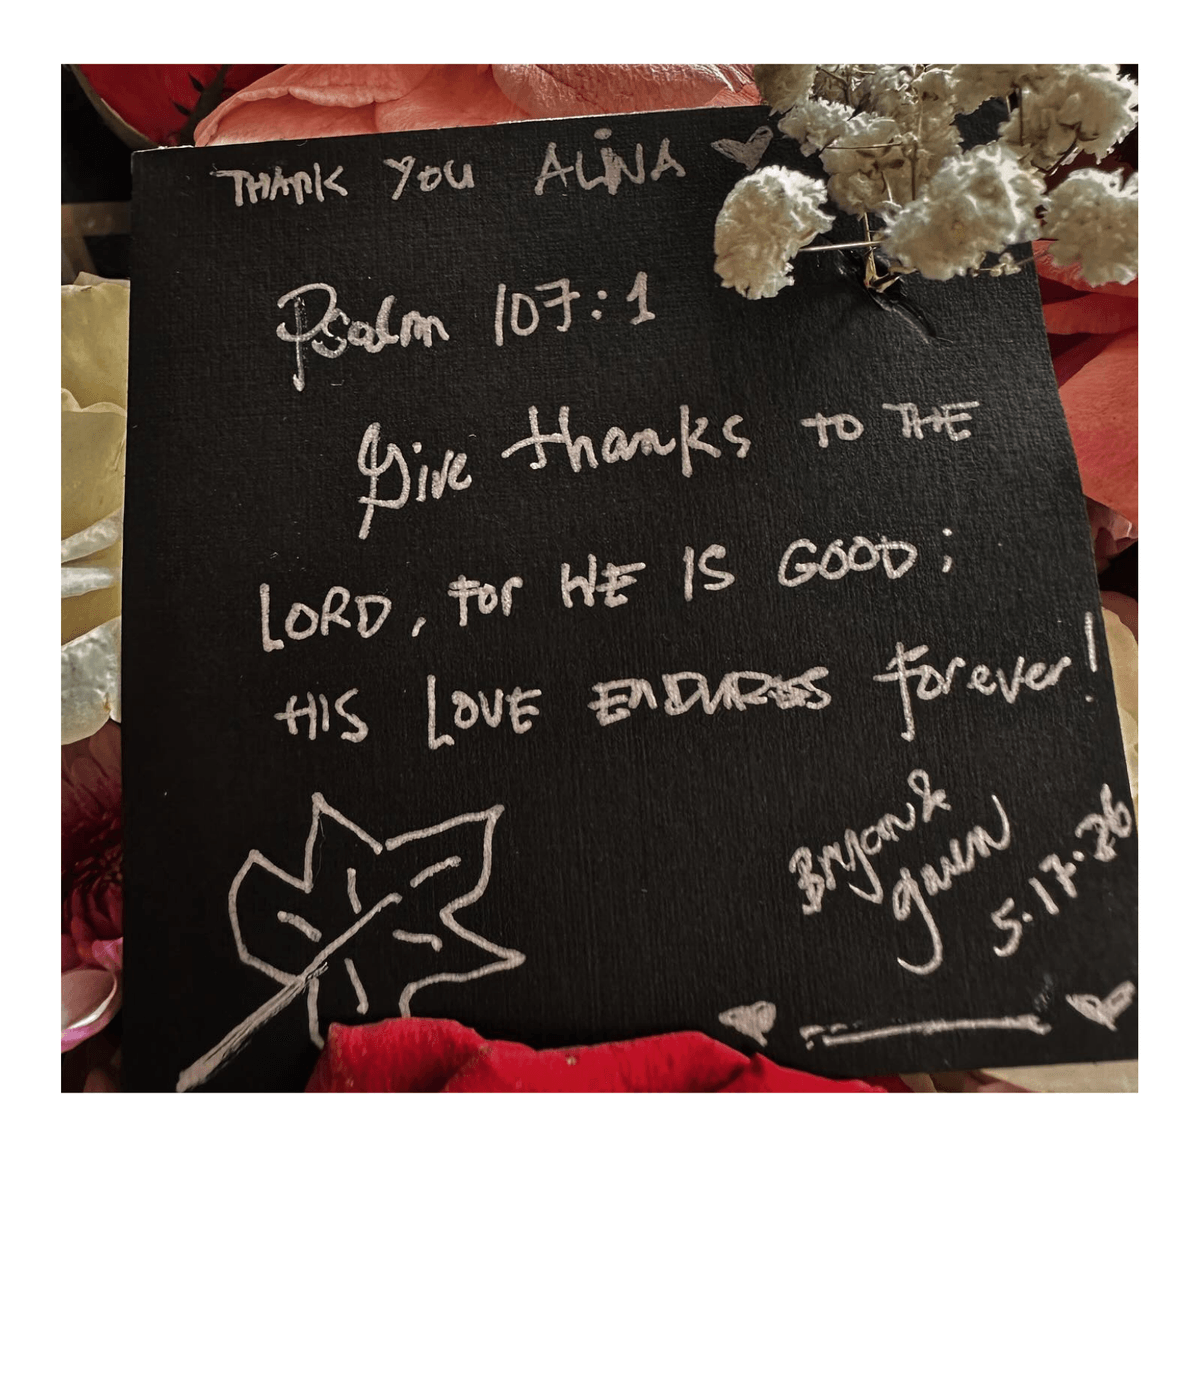 THANK YOU ALiNA
Psalm 107:1
Give thanks to THE
LORD, for HE IS GOOD;
HIS LOVE ENDURES forever!
Bryan &
gwen
5.17.26